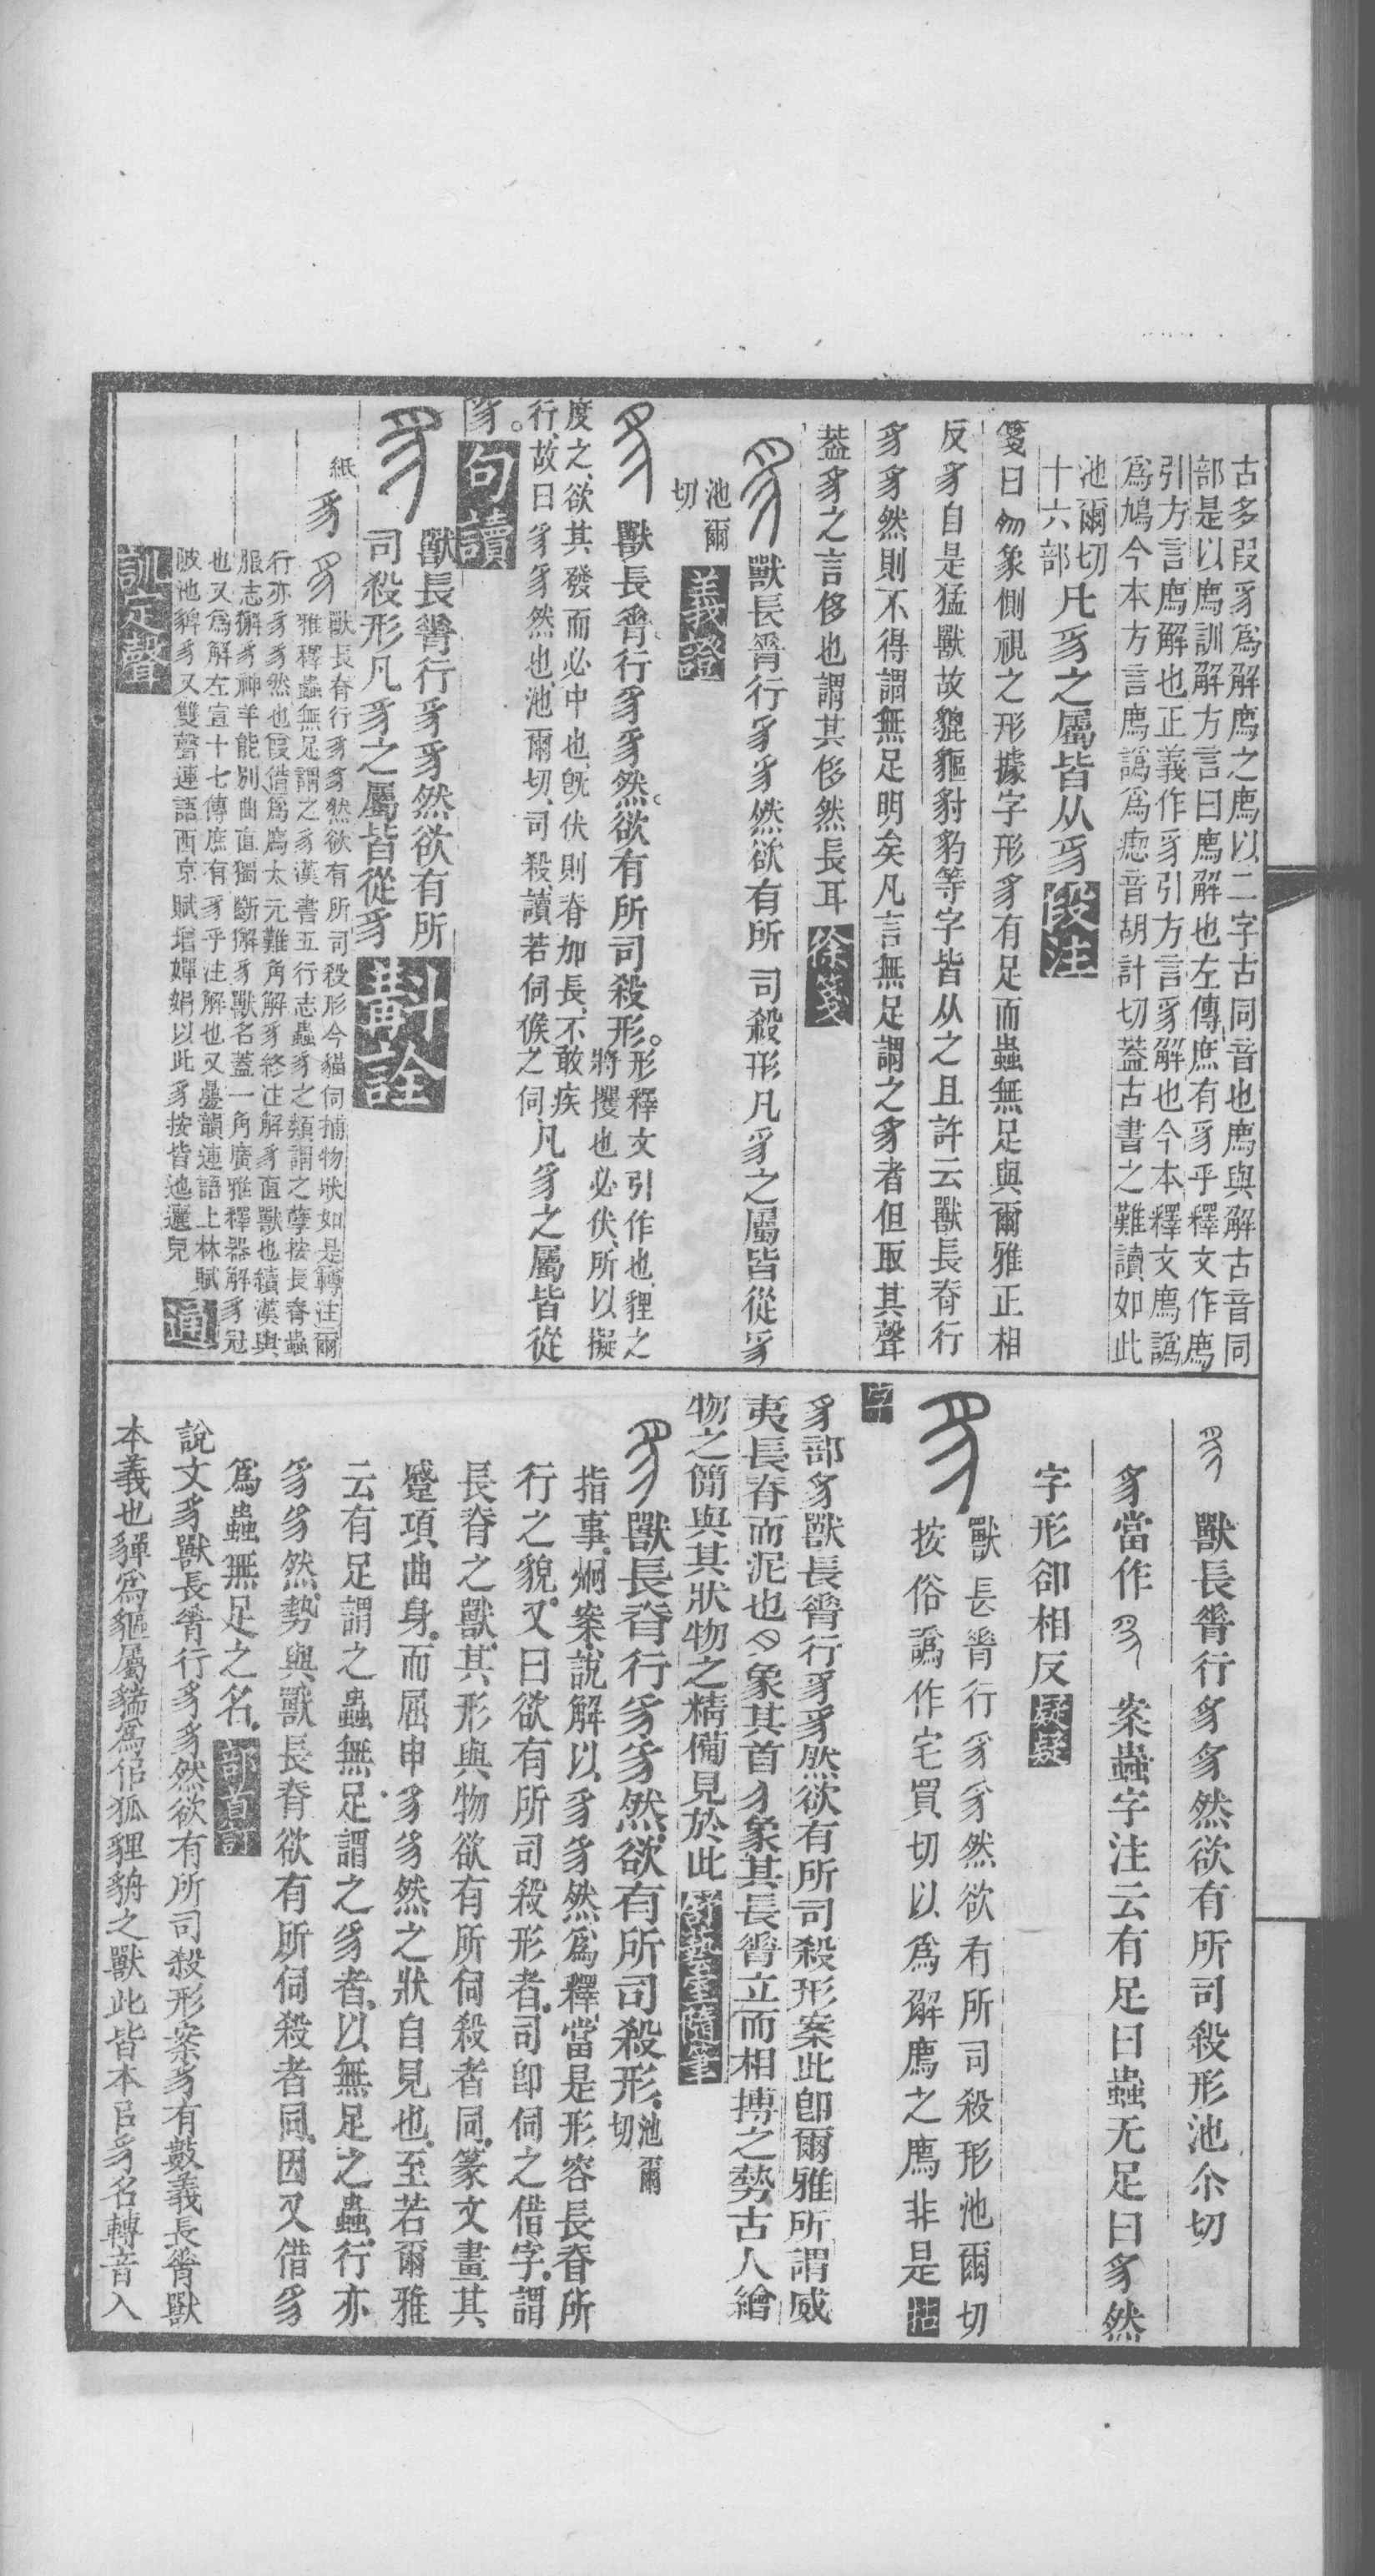 古多叚豸爲解廌之廌以二字古同音也廌與解古音同
部是以廌訓解方言曰廌解也左傳庶有豸乎釋文作廌
引方言廌解也正義作豸引方言豸解也今本釋文廌譌
爲鳩今本方言廌譌爲瘛音胡計切蓋古書之難讀如此
池爾切
十六部
凡豸之屬皆从豸段注
箋曰象側視之形據字形豸有足而蟲無足與爾雅正相
反豸自是猛獸故貔貙豺豹等字皆从之且許云獸長脊行
豸豸然則不得謂無足明矣凡言無足謂之豸者但取其聲
葢豸之言侈也謂其侈然長耳徐箋
獸長脊行豸豸然欲有所司殺形凡豸之屬皆從豸
池爾
切
義證
獸長脊行豸豸然欲有所司殺形。
形釋文引作也貍之
將攫也必伏所以擬
度之欲其發而必中也旣伏則脊加長不敢疾
行故曰豸豸然也池爾切司殺讀若伺候之伺
凡豸之屬皆從
豸。句讀
獸長脊行豸豸然欲有所
司殺形凡豸之屬皆從豸斠詮
紙
豸
獸長脊行豸豸然欲有所司殺形今貓伺捕物狀如是轉注爾
雅釋蟲無足謂之豸漢書五行志蟲豸之類謂之孽按長脊蟲
行亦豸豸然也叚借爲廌太元難角解豸終注解豸直獸也續漢輿
服志獬豸神羊能別曲直獨斷獬豸獸名蓋一角廣雅釋器解豸冠
也又爲解左宣十七傳庶有豸乎注解也又疊韻連語上林賦
陂池貏豸又雙聲連語西京賦增嬋娟以此豸按皆迆邐皃
通
訓定聲
獸長脊行豸豸然欲有所司殺形池尒切
豸當作 案蟲字注云有足曰蟲无足曰豸然
字形卻相反疑疑
獸長脊行豸豸然欲有所司殺形池爾切
按俗譌作宅買切以爲解廌之廌非是拈
字
豸部豸獸長脊行豸豸然欲有所司殺形案此卽爾雅所謂威
夷長脊而泥也象其首象其長脊立而相搏之勢古人繪
物之簡與其狀物之精備見於此舒藝室隨筆
獸長脊行豸豸然欲有所司殺形
池爾
切
指事炯案說解以豸豸然爲釋當是形容長脊所
行之貌又曰欲有所司殺形者司卽伺之借字謂
長脊之獸其形與物欲有所伺殺者同篆文畫其
蹙項曲身而屈申豸豸然之狀自見也至若爾雅
云有足謂之蟲無足謂之豸者以無足之蟲行亦
豸豸然勢與獸長脊欲有所伺殺者同因又借豸
爲蟲無足之名部首訂
說文豸獸長脊行豸豸然欲有所司殺形案豸有數義長脊獸
本義也貚爲貙屬貒爲㐰狐貍貈之獸此皆本呂豸名轉音入